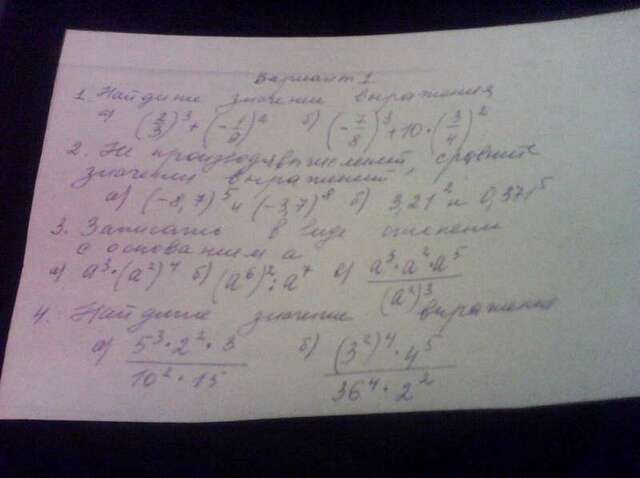 Вариант 1.
1. Найдите значение выражения
а) (2/3)³ + (-1/9)² б) (-7/8)³ + 10 · (3/4)²
2. Не производя вычислений, сравните
значения выражений
а) (-8,7)⁵ и (-3,7)⁸ б) 3,21² и 0,371⁵
3. Записать в виде степени
с основанием а
а) a³·(a²)⁴ б) (a⁶)² : a⁷ в) a³·a²·a⁵ / (a²)³
4. Найдите значение выражения
а) 5³·2²·3 / 10²·15 б) (3²)⁴·4⁵ / 36⁴·2²